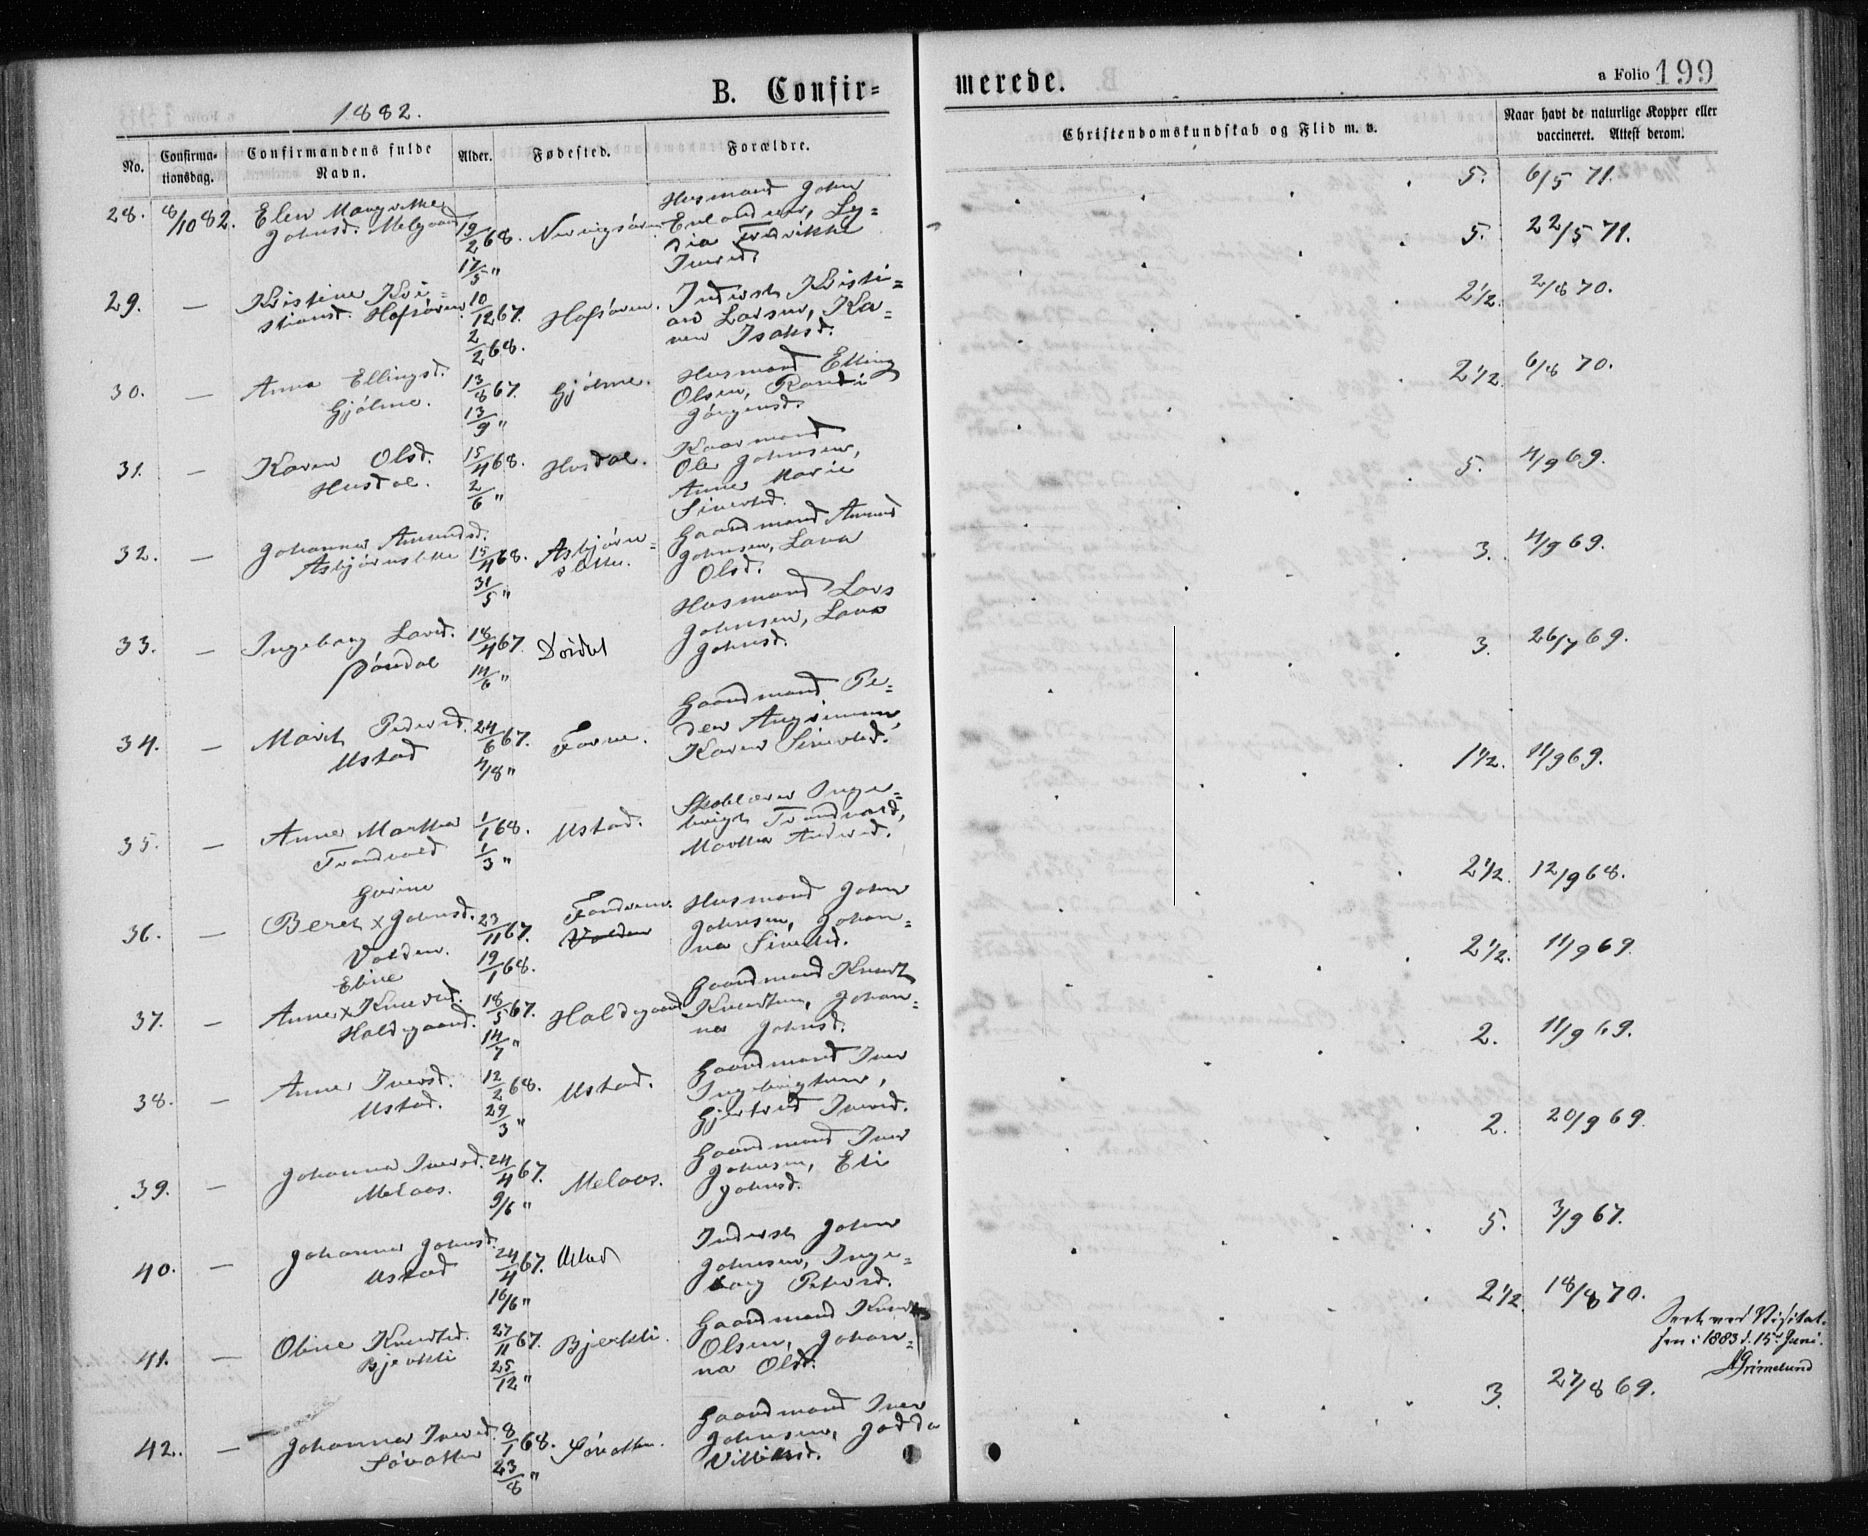 1882.
B. Confir=
merede.
a Folio 199
No.
Confirma-
tionsdag.
Confirmandens fulde
Navn.
Alder.
Fødested.
Forældre.
Christendomskundskab og Flid m. v.
Naar havt de naturlige Kopper eller
vaccineret. Attest derom.
28. 8/10 82. Elen
Johnsd. Melgaard
19/2 68.
17/5 "
Husmand John
Erlandsen, Ly=
dia Fredrikke
Iversd.
5. 6/5 71.
29. — Kristine Kri=
stiansd. Hofsøren
10/12 67.
2/2 68.
Hofsøren.
Inderst Kristi=
an Larsen, Ka=
ren Isaksd.
5. 22/5 71.
30. — Anna Ellingsd.
Gjølme.
13/8 67.
13/9 "
Gjølme.
Husmand Elling
Olsen, Randi
Jørgensd.
2 1/2. 2/8 70.
31. — Karen Olsd.
Husdal.
15/4 68.
2/6 "
Husdal.
Gaardmand
Ole Johnsen,
Anne Marie
Sivertsd.
2 1/2. 6/8 70.
32. — Johanna Amundsd.
Asbjørnslette
15/4 68.
31/5 "
Asbjørn=
slette.
Gaardmand Amund
Johnsen, Lava
Olsd.
5. 4/9 69.
33. — Ingeborg Larsd.
18/4 67.
14/6 "
Husmand Lars
Johnsen, Lava
Johnsd.
3. 4/9 69.
34. — Marit Pedersd.
Ustad
24/6 67.
4/8 "
Farne.
Gaardmand Pe=
der
Karen Sivertsd.
3. 26/7 69.
35. — Anne Martha
Trondvold
1/1 68.
1/3 "
Ustad.
Skolelærer Inge=
brigt Trondvold,
Martha Andersd.
1 1/2. 11/9 69.
Gurine
36. — Beret x Johnsd.
Volden.
23/11 67.
19/1 68.
Volden
Husmand John
Johnsen, Johan=
na Sivertsd.
2 1/2. 12/9 68.
Eline
37. — Anne x Knudsd.
Haldogaard.
18/5 67.
14/7 "
Haldogaard.
Gaardmand Knudt
Knudtsen, Johan=
na Johnsd.
2 1/2. 11/9 69.
38. — Anne Iversd.
Ustad.
12/2 68.
29/3 "
Ustad.
Gaardmand Iver
Ingebrigtsen,
Gjertrud Iversd.
2. 11/9 69.
39. — Johanna Iversd.
Melaas.
24/4 67.
9/6 "
Melaas.
Gaardmand Iver
Johnsen, Eli
Johnsd.
2. 20/9 69.
40. — Johanna Johnsd.
Ustad
24/4 67.
16/6 "
Ustad
Inderst John
Johnsen, Inge=
borg Petersd.
5. 3/9 67.
41. — Oline Knudtsd.
Bjerkli
27/11 67.
25/12 "
Bjerkli.
Gaardmand Knudt
Olsen, Johan=
na Olsd.
2 1/2 18/8 70.
Seet ved Visitat.
sen i 1883 d. 15de Juni.
AGrimelund
42. — Johanna Iversd.
Sørotten
8/1 68.
23/8 "
Sørotten.
Gaardmand Iver
Johnsen, Jodda
Villiksd.
3. 27/8 69.